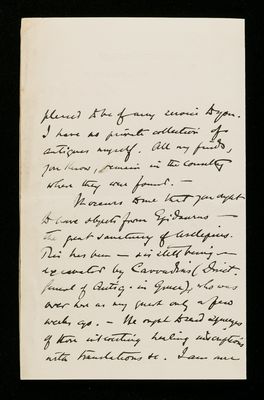 pleased to be of any service to you.
I have no private collection of
antiques myself. All my finds,
you know, remain in the country
where they were found. —
It occurs to me that you ought
to have objects from Epidauros —
the great sanctuary of Asclepius.
This has been — & is still being —
excavated by Cavvadias (Direct.
General of Antiq. in Greece), who was
over here as my guest only a few
weeks ago. — We ought to send squeezes
of those interesting healing inscriptions
with translations &c. I am sure